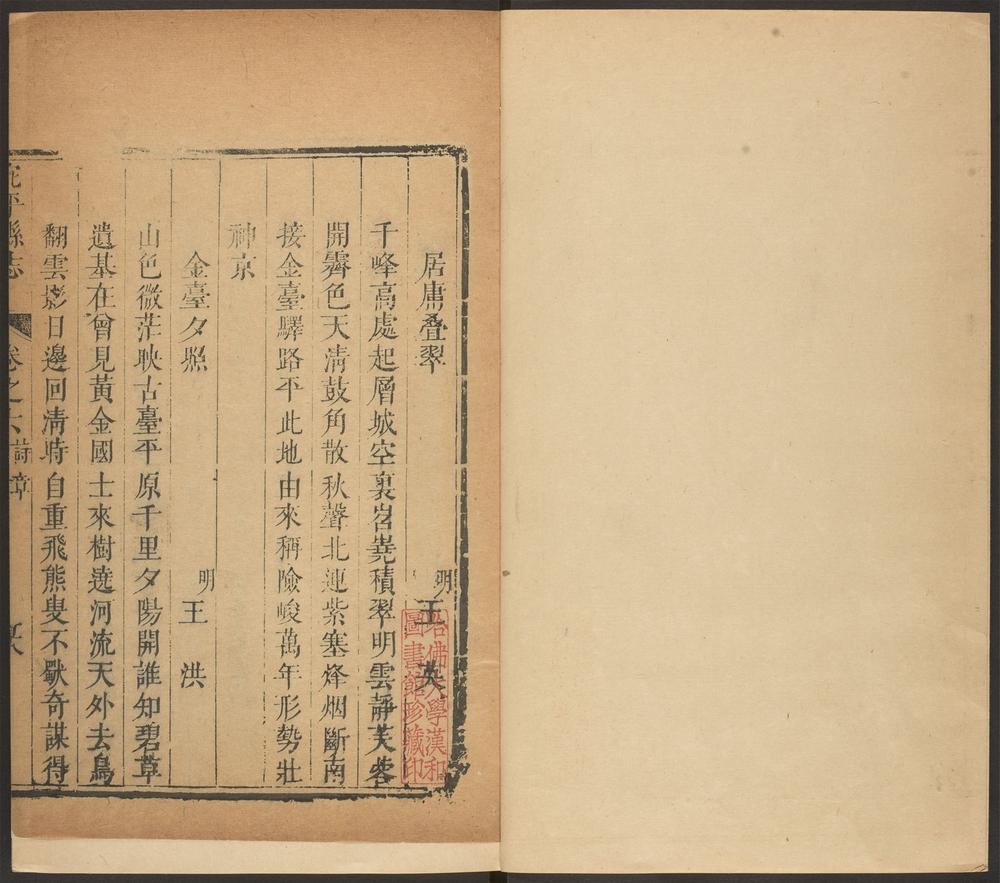 居庸叠翠
明王 英
千峰高處起層城空裏岧嶤積翠明雲靜芙蓉
開霽色天清鼓角散秋聲北連紫塞烽烟斷南
接金臺驛路平此地由來稱險峻萬年形勢壯
神京
金臺夕照
明王 洪
山色微茫映古臺平原千里夕陽開誰知碧草
遺基在曾見黃金國士來樹遶河流天外去鳥
翻雲影日邊回清時自重飛熊叟不獻奇謀得
宛平縣志 卷之六 詩章
哈佛大學漢和
圖書館珍藏印